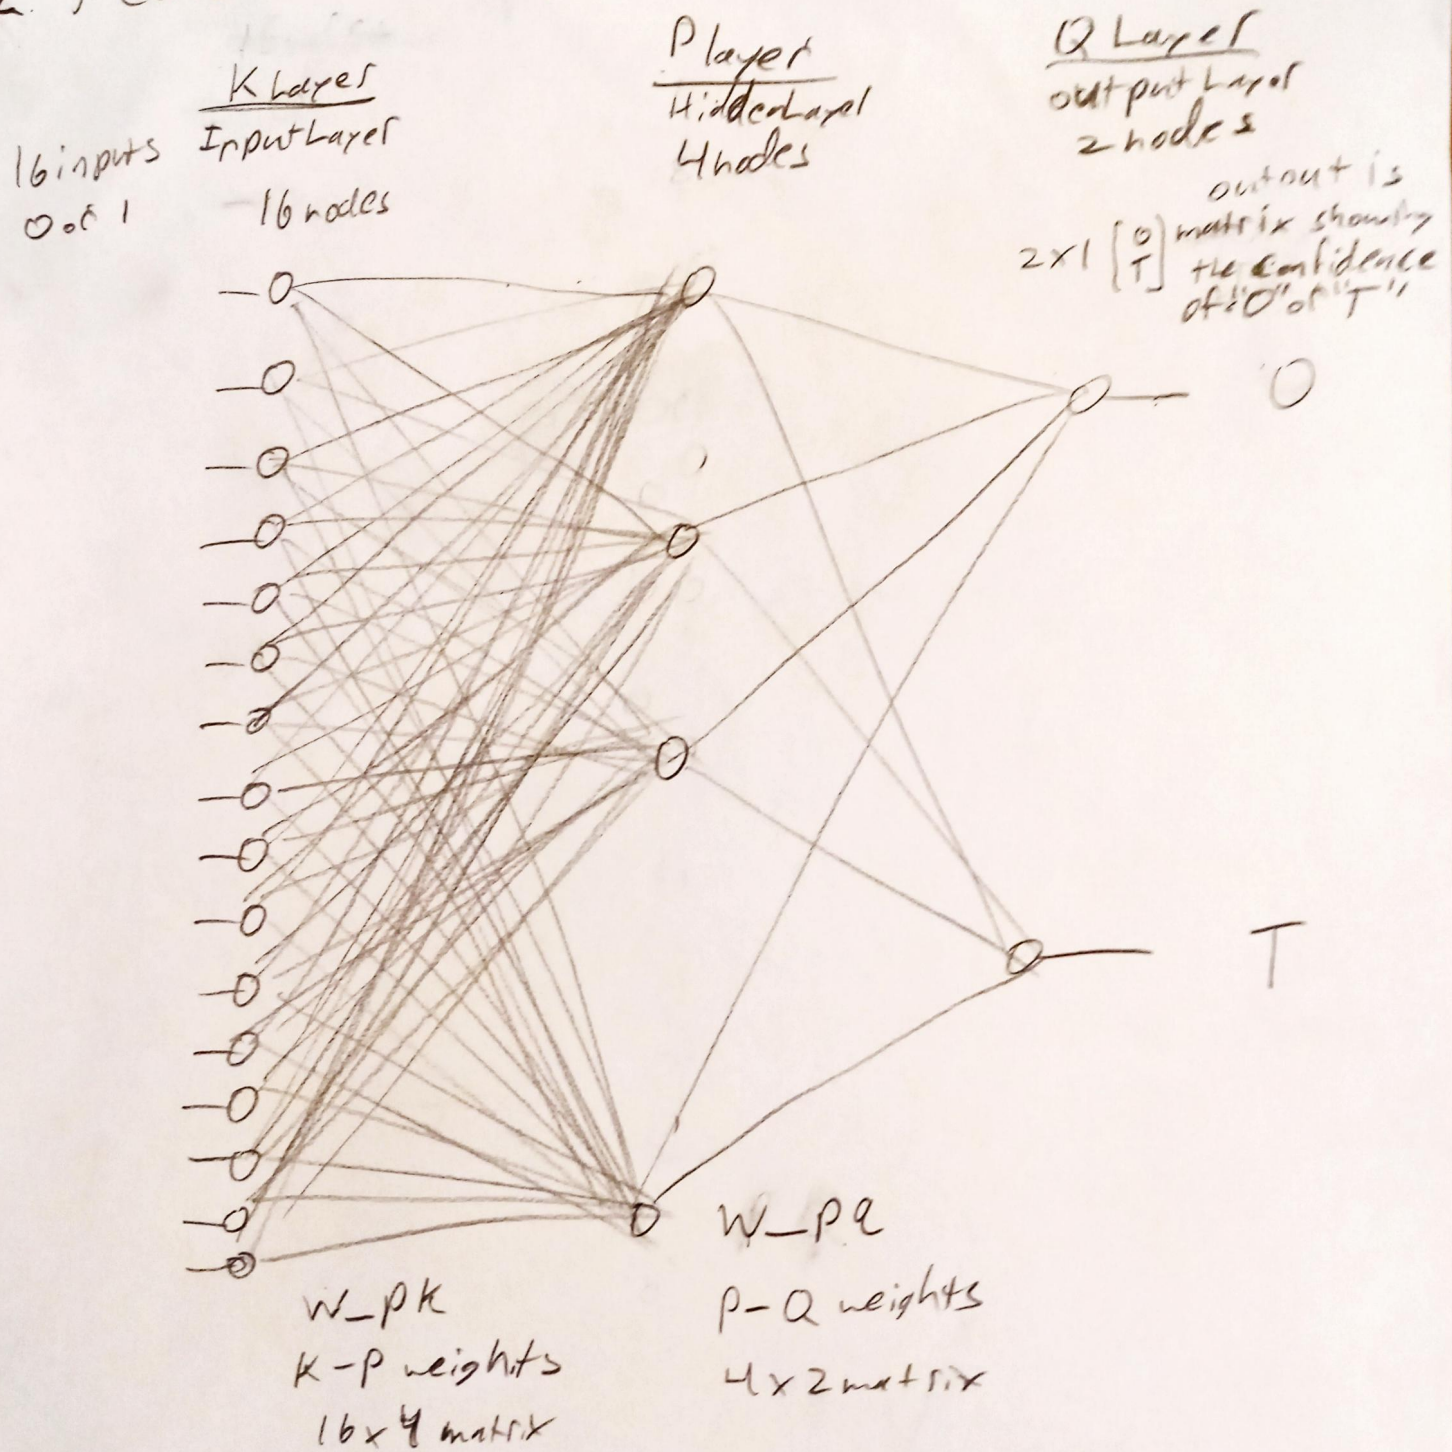 K Layer
Input Layer
16 inputs
0 or 1
16 nodes
P layer
Hidden Layer
4 nodes
Q Layer
output Layer
2 nodes
outout is
2x1 [O T] matrix showing
the confidence
of "O" or "T"
O
T
W_pk
K-P weights
16x4 matrix
W_pq
P-Q weights
4x2 matrix